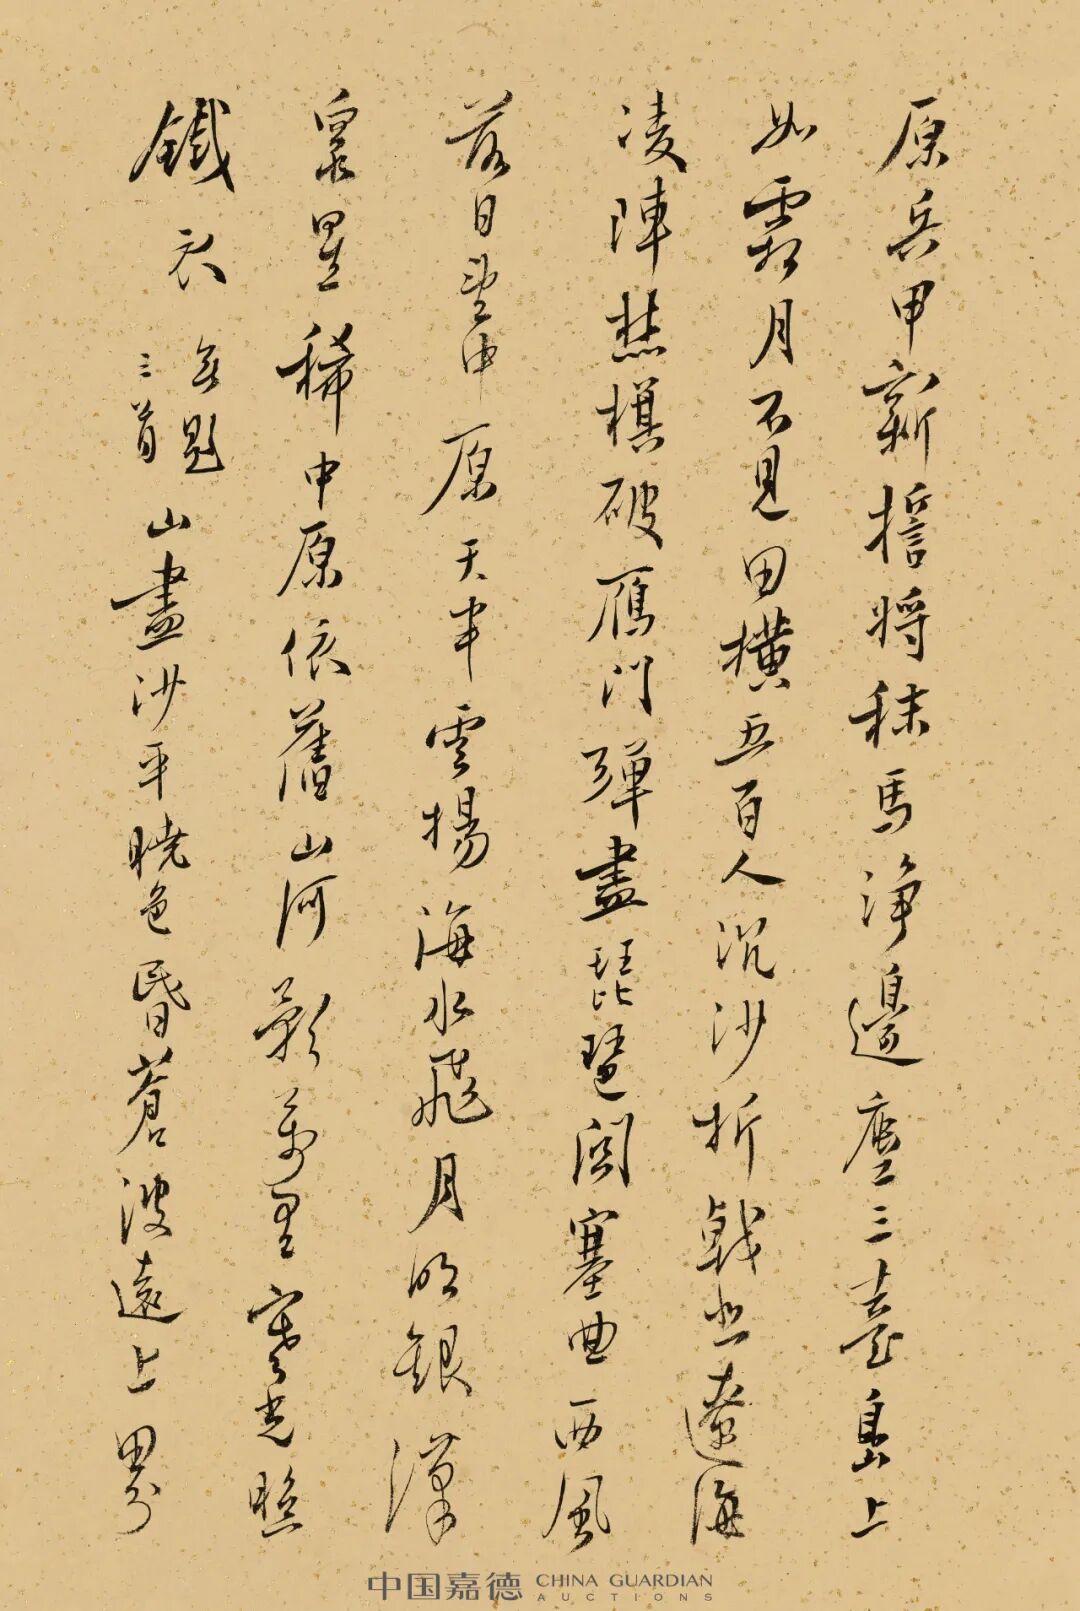 原兵甲新揩將秣馬淨邊塵三臺島上
如霜月不見田橫五百人沉沙折戟出遼海
凌陣焚模破雁門彈盡琵琶關塞曲西風
落日望中原天半雲揚海水飛月明銀漢
眾星稀中原依舊山河影萬里寒光照
鐵衣
無題
三首
山盡沙平曉色昏蒼波遠上界
中国嘉德 CHINA GUARDIAN
AUCTIONS